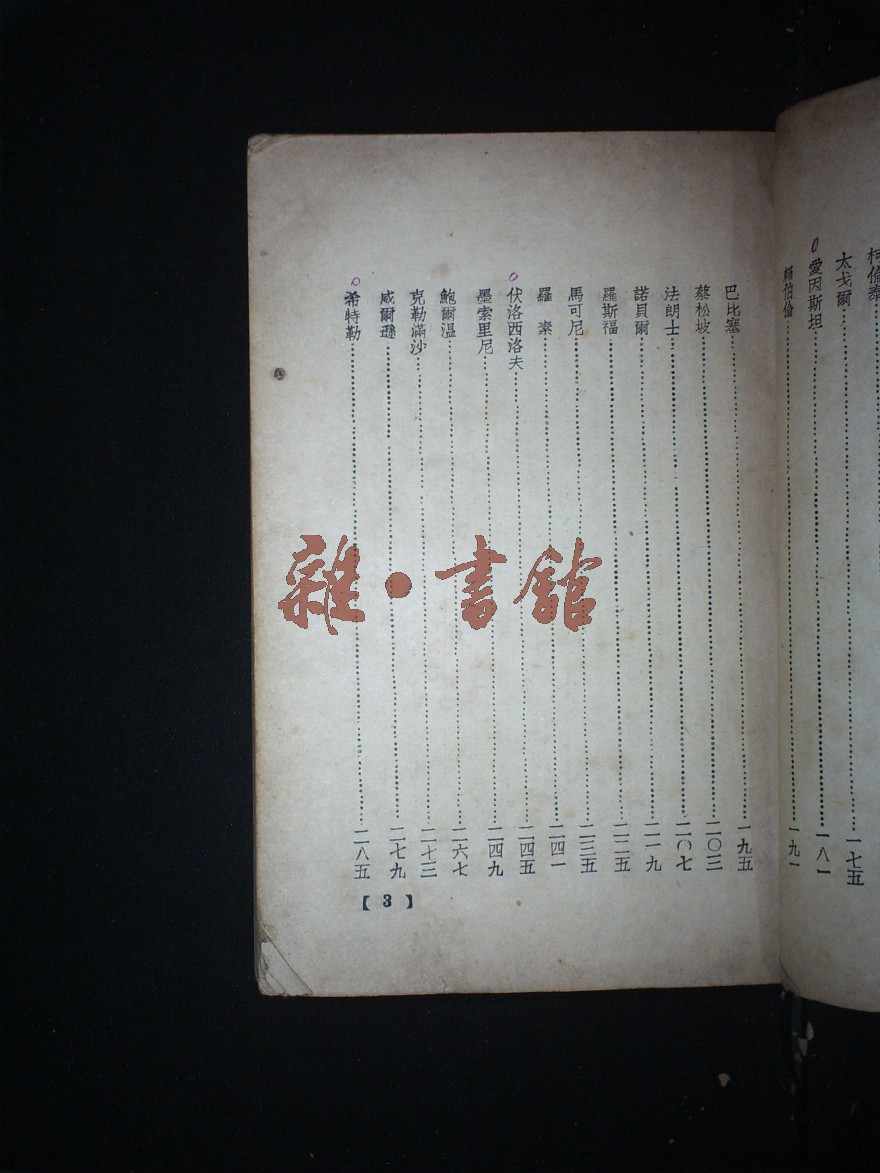 太戈爾 一七五
愛因斯坦 一八一
賴伯倫 一九一
巴比塞 一九五
蔡松坡 二〇三
法朗士 二〇七
諾貝爾 二一九
羅斯福 二二五
馬可尼 二三五
羅素 二四一
伏洛西洛夫 二四五
墨索里尼 二四九
鮑爾溫 二六七
克勒滿沙 二七三
威爾遜 二七九
希特勒 二八五
【3】
雜·書館